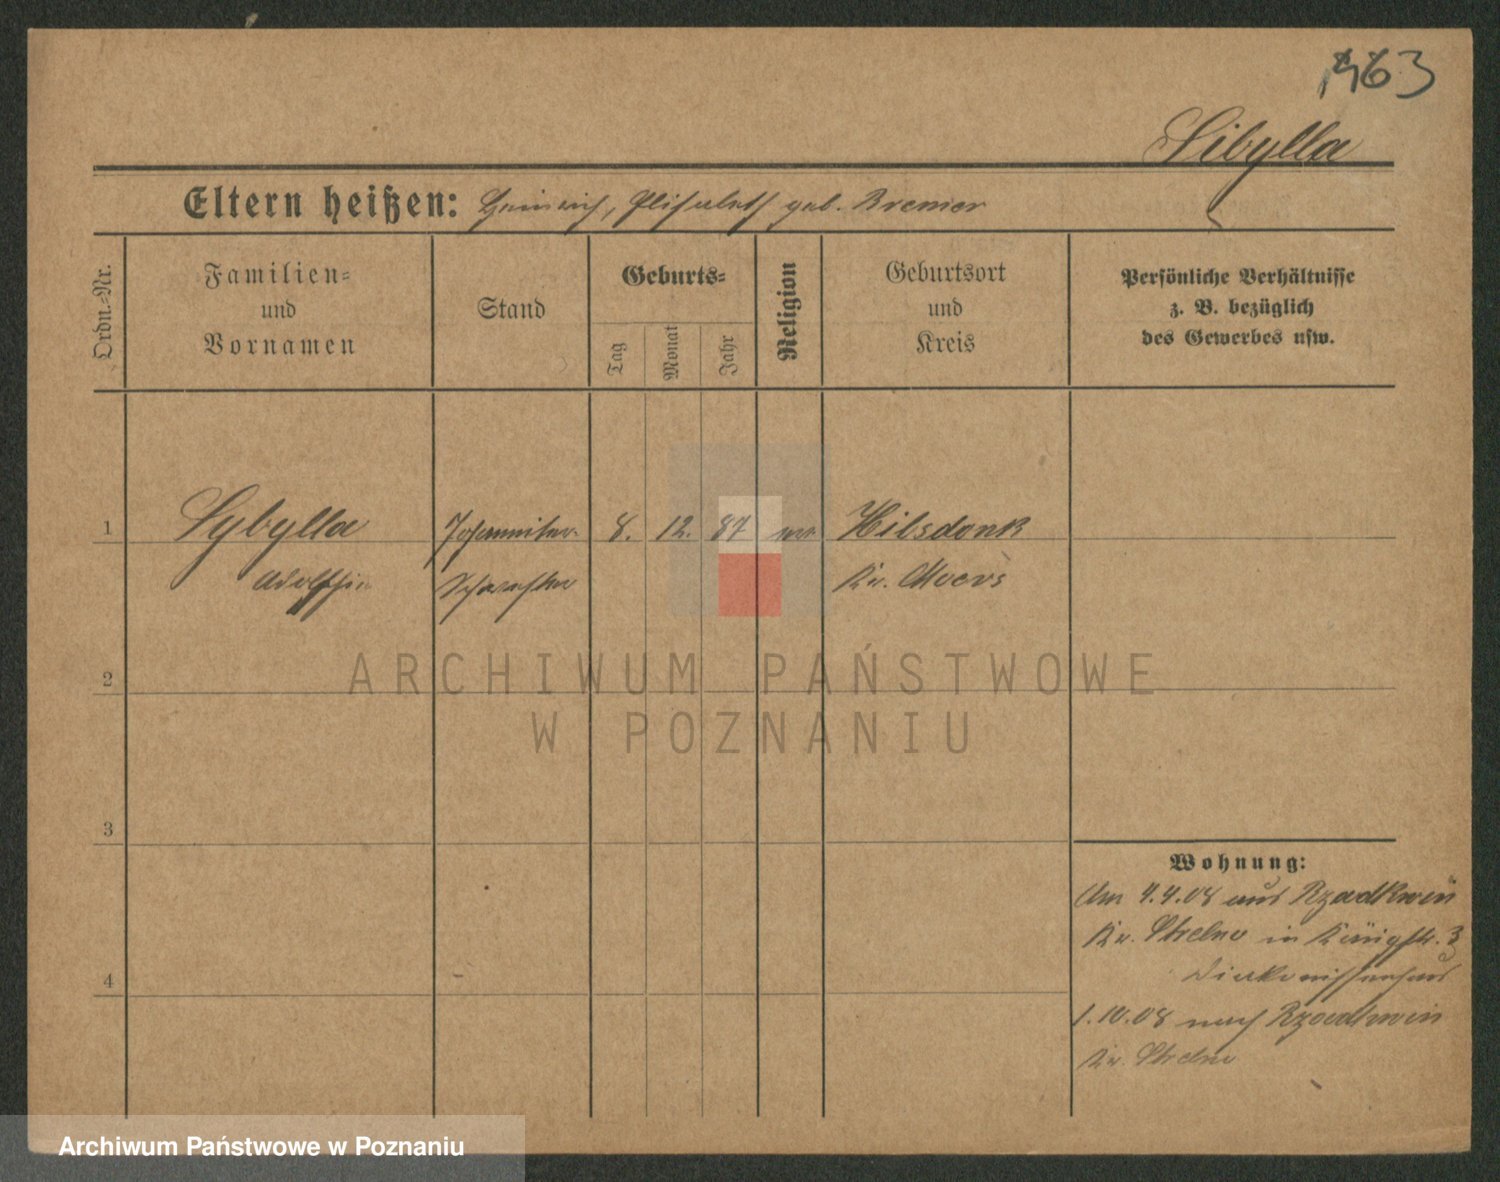 1463
Sibylla
Eltern heißen: Heinrich, Elisabeth geb. Bremer
Ordn.-Nr.
Familien-
und
Vornamen
Stand
Geburts-
Tag
Monat
Jahr
Religion
Geburtsort
und
Kreis
Persönliche Verhältnisse
z. B. bezüglich
des Gewerbes usw.
1 Sybylla Johanniter- 8. 12. 87 Hibsdonk
Schwester Kr. Moers
ARCHIWUM PAŃSTWOWE
W POZNANIU
2
3
4
Wohnung:
Am 4.4.08 aus Rzadkwin
Kr. Strelno in Königstr. 3
Diakonissenhaus
1.10.08 nach Rzadkwin
Kr. Strelno
Archiwum Państwowe w Poznaniu